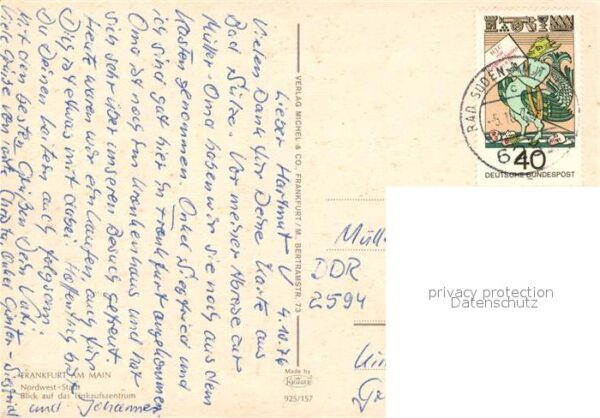 Lieber Hartmut!
4.10.76
Vielen Dank für Deine Karte aus
Bad Sülze. Vor meiner Abreise zur
Müller-Oma haben wir sie noch aus dem
Kasten genommen. Onkel Siegfried und
ich sind gut hier in Frankfurt angekommen.
Oma ist noch im Krankenhaus und hat
sich sehr über unseren Besuch gefreut.
Heute waren wir einkaufen, auch für
Dich ist etwas mit dabei. Hoffentlich bist
Du Deinen auch folgsam.
Mit den besten Grüßen Dein Vati.
Viele Grüße von Onkel Günter - Siegfried
und Johannes
VERLAG MICHEL & CO., FRANKFURT/M. BERTRAMSTR. 73
FRANKFURT AM MAIN
Nordwest-Stadt
Blick auf das Einkaufszentrum
Made by
KRÜGER
925/157
BAD SODEN
-5.10
40
DEUTSCHE BUNDESPOST
Müll
DDR
2594
privacy protection
Datenschutz